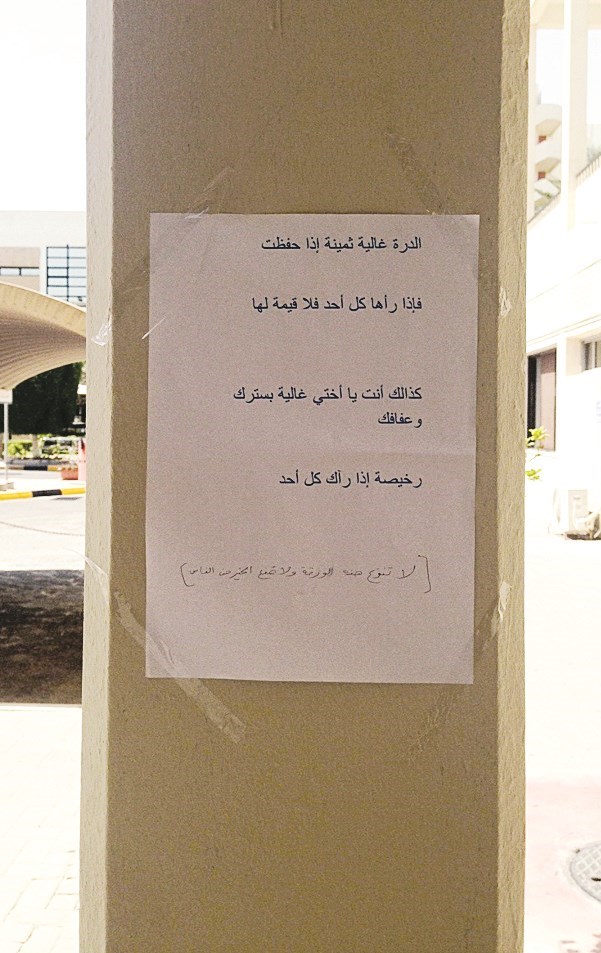 الدرة غالية ثمينة إذا حفظت
فإذا رأها كل أحد فلا قيمة لها
كذالك أنت يا أختي غالية بسترك
وعفافك
رخيصة إذا رآك كل أحد
[لا تنزع هذه الورقة ولا تمنع الخير عن الناس]